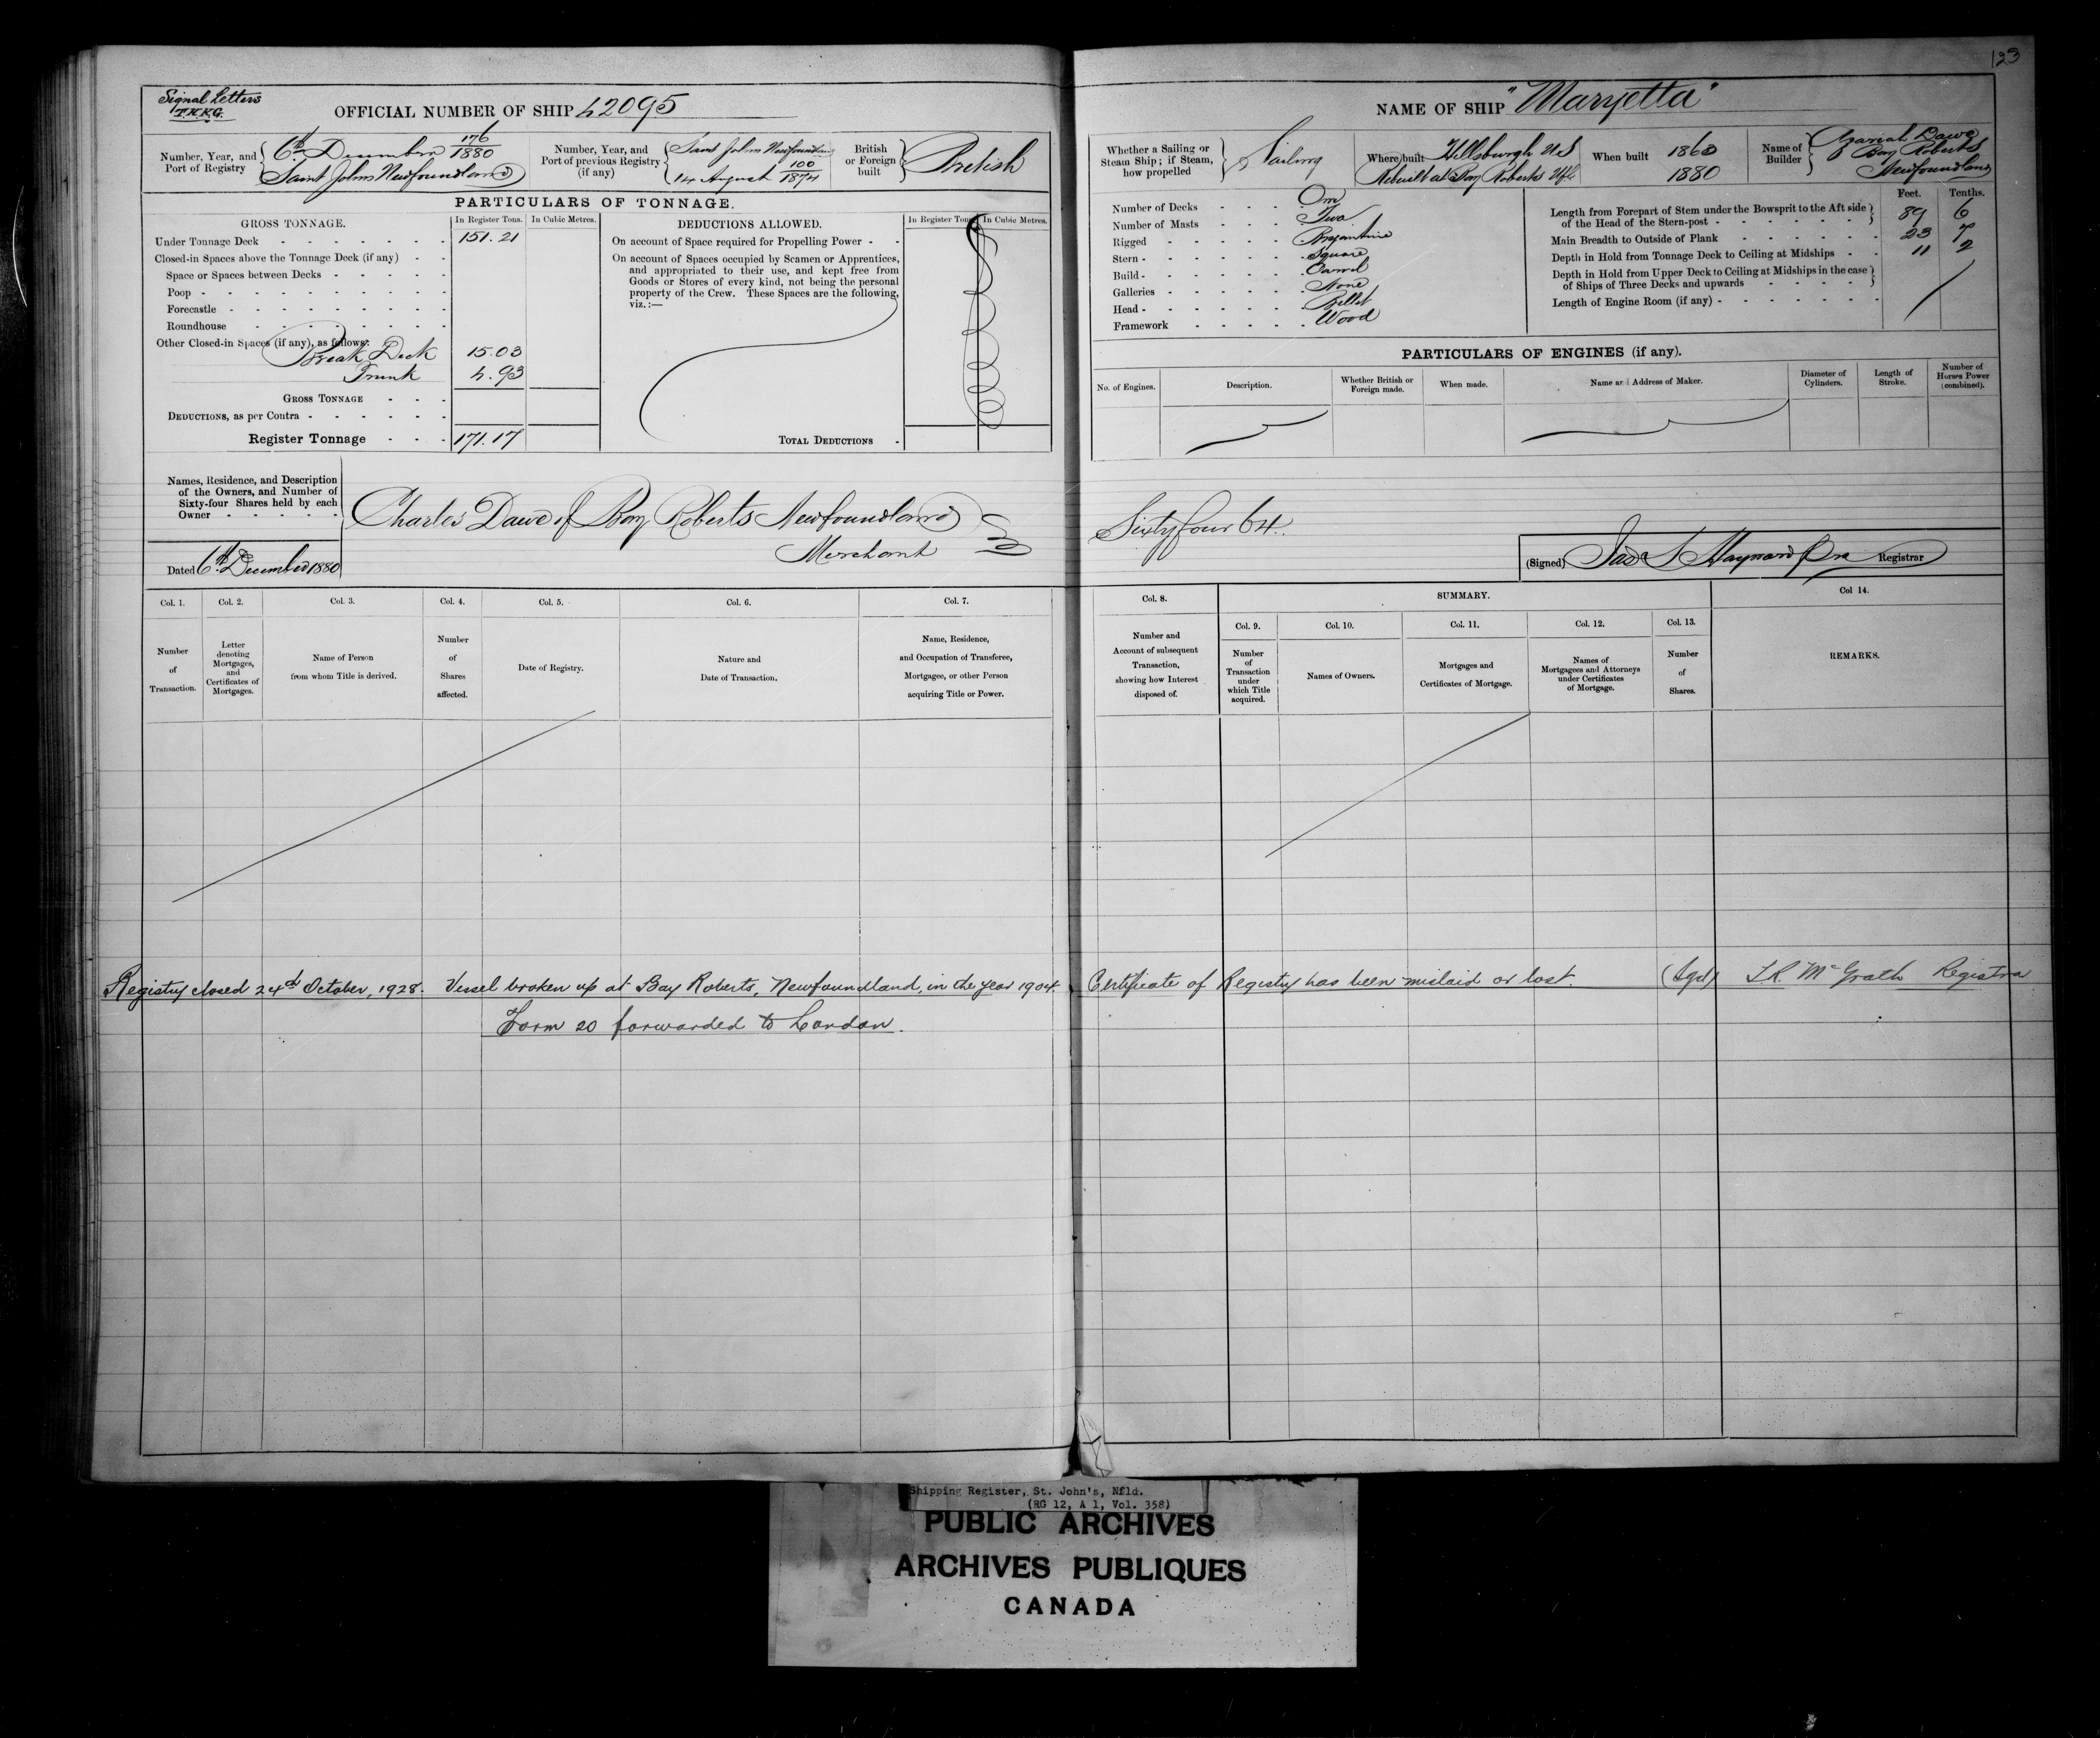 123
Signal Letters
T.H.K.G.
OFFICIAL NUMBER OF SHIP 42095
Number, Year, and Port of Registry
6th December 176/1880
Saint Johns Newfoundland
Number, Year, and Port of previous Registry (if any)
Saint Johns Newfoundland
14 August 100/1874
British or Foreign built
British
PARTICULARS OF TONNAGE.
GROSS TONNAGE.
In Register Tons.
In Cubic Metres.
Under Tonnage Deck 151.21
Closed-in Spaces above the Tonnage Deck (if any)
Space or Spaces between Decks
Poop
Forecastle
Roundhouse
Other Closed-in Spaces (if any), as follows:
Break Deck 15.03
Trunk 4.93
GROSS TONNAGE
DEDUCTIONS, as per Contra
Register Tonnage 171.17
DEDUCTIONS ALLOWED.
In Register Tons.
In Cubic Metres.
On account of Space required for Propelling Power
On account of Spaces occupied by Seamen or Apprentices,
and appropriated to their use, and kept free from
Goods or Stores of every kind, not being the personal
property of the Crew. These Spaces are the following,
viz.:—
TOTAL DEDUCTIONS
Names, Residence, and Description
of the Owners, and Number of
Sixty-four Shares held by each
Owner
Charles Dawe of Bay Roberts Newfoundland
Merchant
Dated 6th December 1880
NAME OF SHIP "Maryetta"
Whether a Sailing or
Steam Ship; if Steam,
how propelled
Sailing
Where built Hillsburgh N.S
Rebuilt at Bay Roberts Nfld
When built 1863
1880
Name of Builder
Azariah Dawe
Bay Roberts
Newfoundland
Number of Decks One
Number of Masts Two
Rigged Brigantine
Stern Square
Build Carvel
Galleries None
Head Billet
Framework Wood
Feet. Tenths.
Length from Forepart of Stem under the Bowsprit to the Aft side
of the Head of the Stern-post 89 6
Main Breadth to Outside of Plank 23 7
Depth in Hold from Tonnage Deck to Ceiling at Midships 11 2
Depth in Hold from Upper Deck to Ceiling at Midships in the case
of Ships of Three Decks and upwards
Length of Engine Room (if any)
PARTICULARS OF ENGINES (if any).
No. of Engines.
Description.
Whether British or Foreign made.
When made.
Name and Address of Maker.
Diameter of Cylinders.
Length of Stroke.
Number of Horses Power (combined).
Sixty four 64
(Signed) Registrar
Col. 1.
Number of Transaction.
Col. 2.
Letter denoting Mortgages, and Certificates of Mortgages.
Col. 3.
Name of Person from whom Title is derived.
Col. 4.
Number of Shares affected.
Col. 5.
Date of Registry.
Col. 6.
Nature and Date of Transaction.
Col. 7.
Name, Residence, and Occupation of Transferee, Mortgagee, or other Person acquiring Title or Power.
Col. 8.
Number and Account of subsequent Transaction, showing how Interest disposed of.
SUMMARY.
Col. 9.
Number of Transaction under which Title acquired.
Col. 10.
Names of Owners.
Col. 11.
Mortgages and Certificates of Mortgage.
Col. 12.
Names of Mortgagees and Attorneys under Certificates of Mortgage.
Col. 13.
Number of Shares.
Col 14.
REMARKS.
Registry closed 24th October, 1928. Vessel broken up at Bay Roberts, Newfoundland, in the year 1904. Certificate of Registry has been mislaid or lost. (Sgd) McGrath Registrar
Form 20 forwarded to London.
Shipping Register, St. John's, Nfld.
(RG 12, A 1, Vol. 358)
PUBLIC ARCHIVES
ARCHIVES PUBLIQUES
CANADA